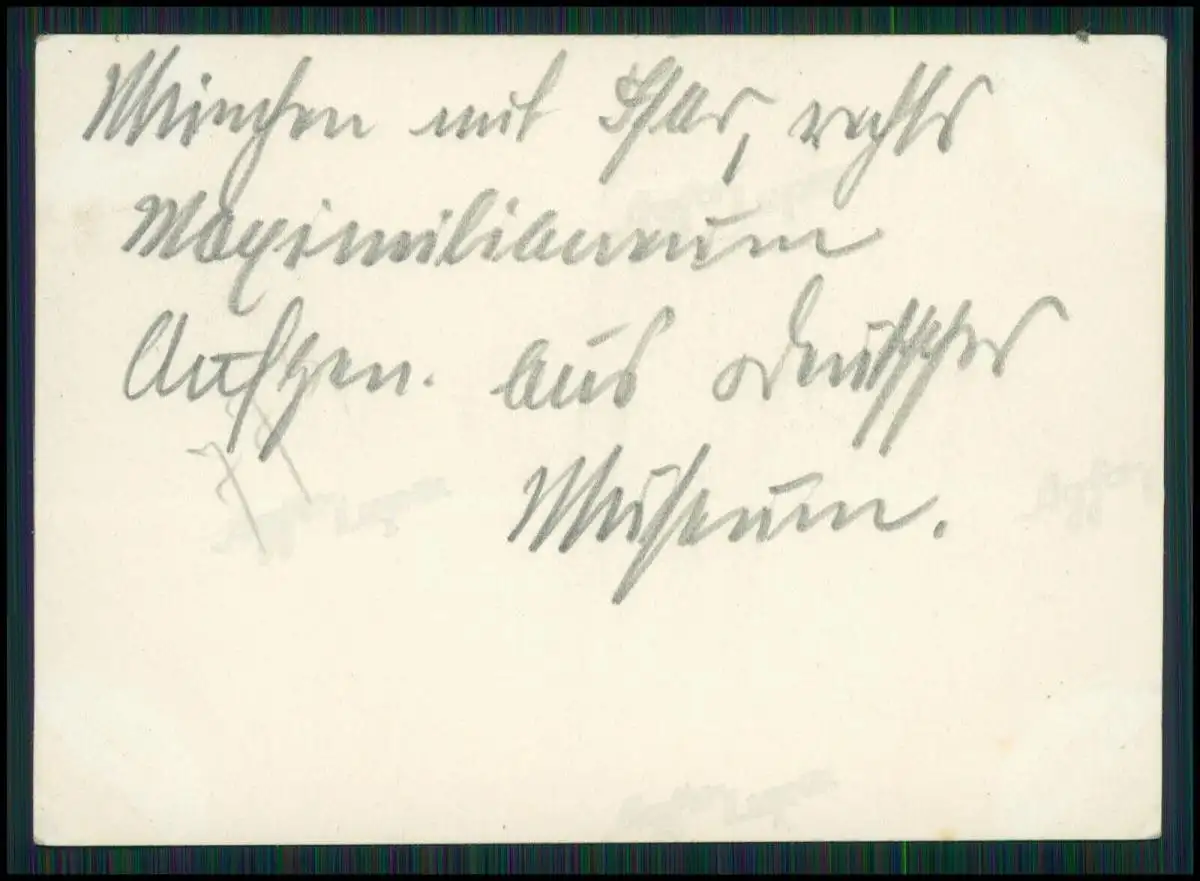 München mit Isar, rechts
Maximilianeum
Aufgen. aus Deutsches
Museum.